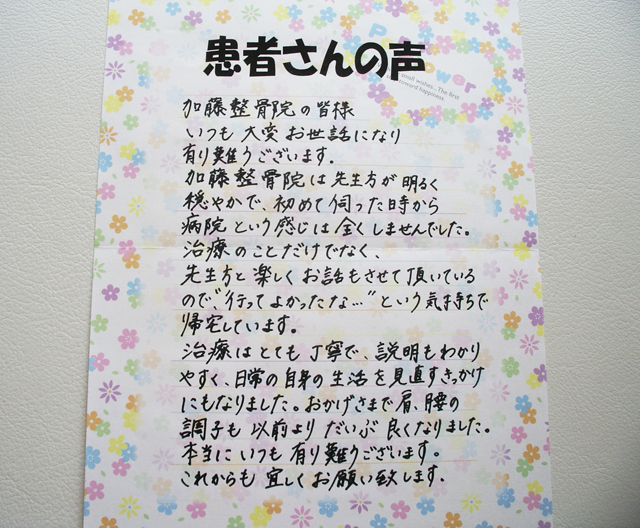 患者さんの声
加藤整骨院の皆様
いつも大変お世話になり
有り難うございます.
加藤整骨院は先生方が明るく
穏やかで、初めて伺った日から
病院という感じは全くしませんでした。
治療のことだけでなく、
先生方と楽しくお話もさせて頂いている
ので、"行ってよかったな…"という気持ちで
帰宅しています。
治療はとても丁寧で、説明もわかり
やすく、日常の自身の生活を見直すきっかけ
にもなりました。おかげさまで肩、腰の
調子も以前よりだいぶ良くなりました。
本当にいつも有り難うございます。
これからも宜しくお願い致します.
small wishes...The first
toward happiness